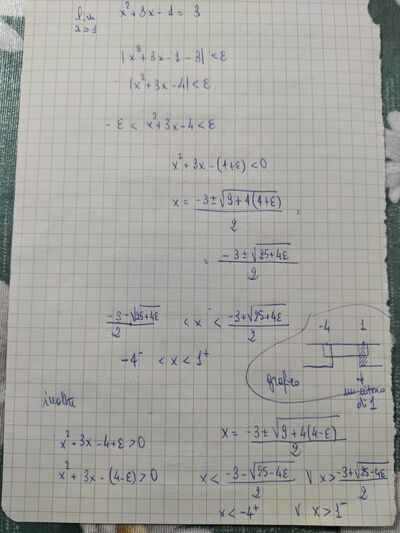 lim x²+3x-1 = 3
x→1
|x²+3x-1-3| < ε
|x²+3x-4| < ε
-ε < x²+3x-4 < ε
x²+3x-(4+ε) < 0
x = (-3±√(9+4(4+ε)))/2 =
= (-3±√(25+4ε))/2
(-3-√(25+4ε))/2 < x < (-3+√(25+4ε))/2
-4⁻ < x < 1⁺
-4 1
grafico
intorno
di 1
inoltre
x²+3x-4+ε > 0
x²+3x-(4-ε) > 0
x = (-3±√(9+4(4-ε)))/2
x < (-3-√(25-4ε))/2 V x > (-3+√(25-4ε))/2
x < -4⁺ V x > 1⁻